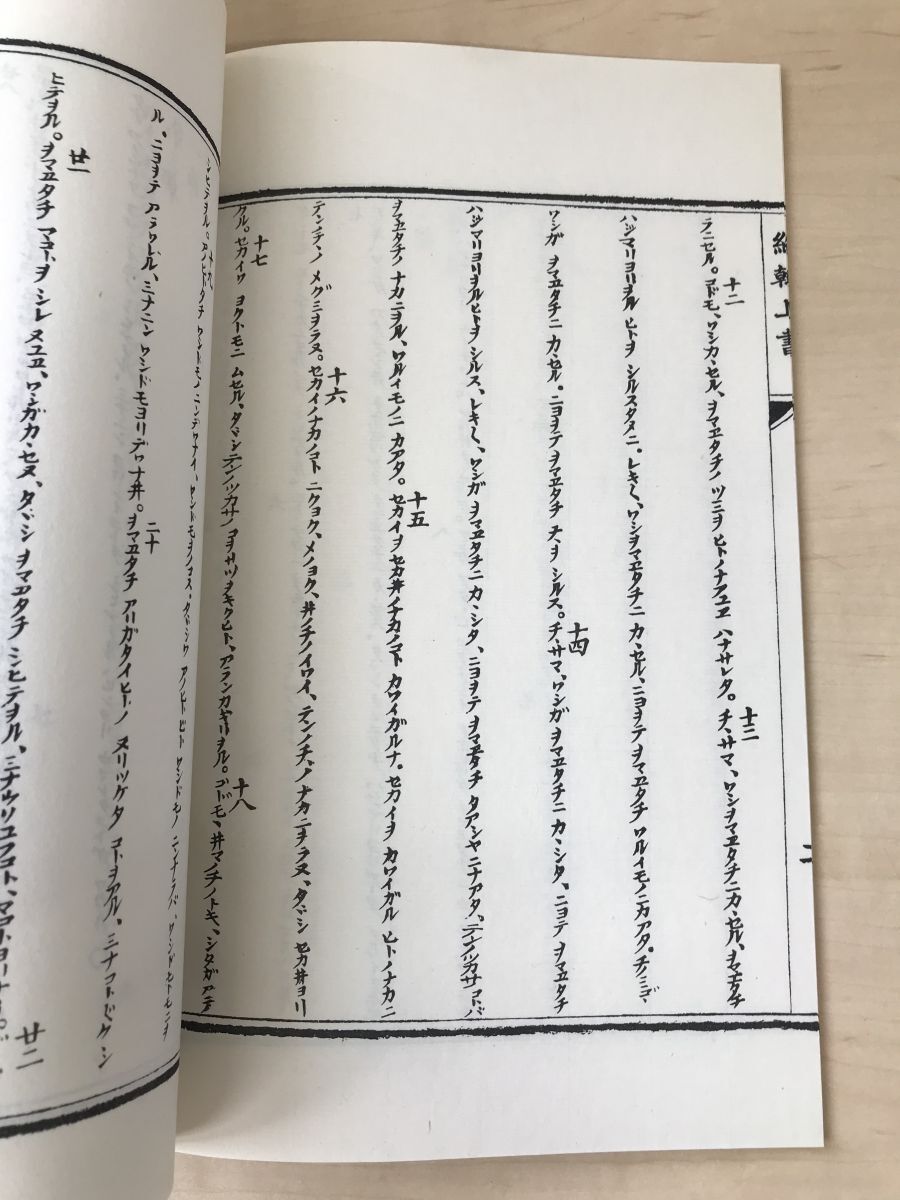 約翰上書
二
ラニセル。十二コドモ、ワシカヽセル、ヲマエタチノ ツミヲ ヒトノナアユエ ハナサレタ。十三チヽサマ、ワシヲマエタチニカヽセル、ヲマエタチ
ハジマリヨリヲル ヒトヲ シルスタニ。レキ〳〵、ワシヲマエタチニ カヽセル、ニヨヲテヲマエタチ ワルイモノニカアタ。
ワシガ ヲマエタチニ カヽセル。ニヨヲテヲマエタチ チヽヲ シルス。十四チヽサマ、ワシガ ヲマエタチニ カヽシタ、ニヨテ ヲマエタチ
ハジマリヨリヲルヒトヲ シルス、レキ〳〵、ワシガ ヲマエタチニ カヽシタ、ニヨヲテ ヲマエタチ タアシヤニナアタ、テンノツカサ コトバ
ヲマエタチノ ナカニヲル、ワルイモノニ カアタ。十五セカイヲ セカ井ノナカノコト カワイガルナ。セカイヲ カワイガル ヒトノナカニ
テンノチヽノ メグミヲラヌ。十六セカイノナカノコト ニクヨク、メノヨク、井ノチノイワイ、テンノチヽノ ナカニヲラヌ、タヾシ セカ井ヨリ
クル。十七セカイワ ヨクトモニ ムセル、タヾシ テンノツカサノ ヲキクヒト、アランカギリヲル。十八コドモ、井マノチノトキ、シタガアテ
シヒテヲル。十九
ル、ニヨヲテ アラワレル、ミナニン ワシドモヨリデワナ井。二十ヲマエタチ アリガタイヒトノ ヌリツケタ コトヲアル、ミナコトドモ シ
ヒテヲル。廿一ヲマエタチ マコトヲ シレヌユエ、ワシガカヽセヌ、タヾシ ヲマエタチ シヒテヲル、ミナウソユフコト、マコトヨリ 廿二